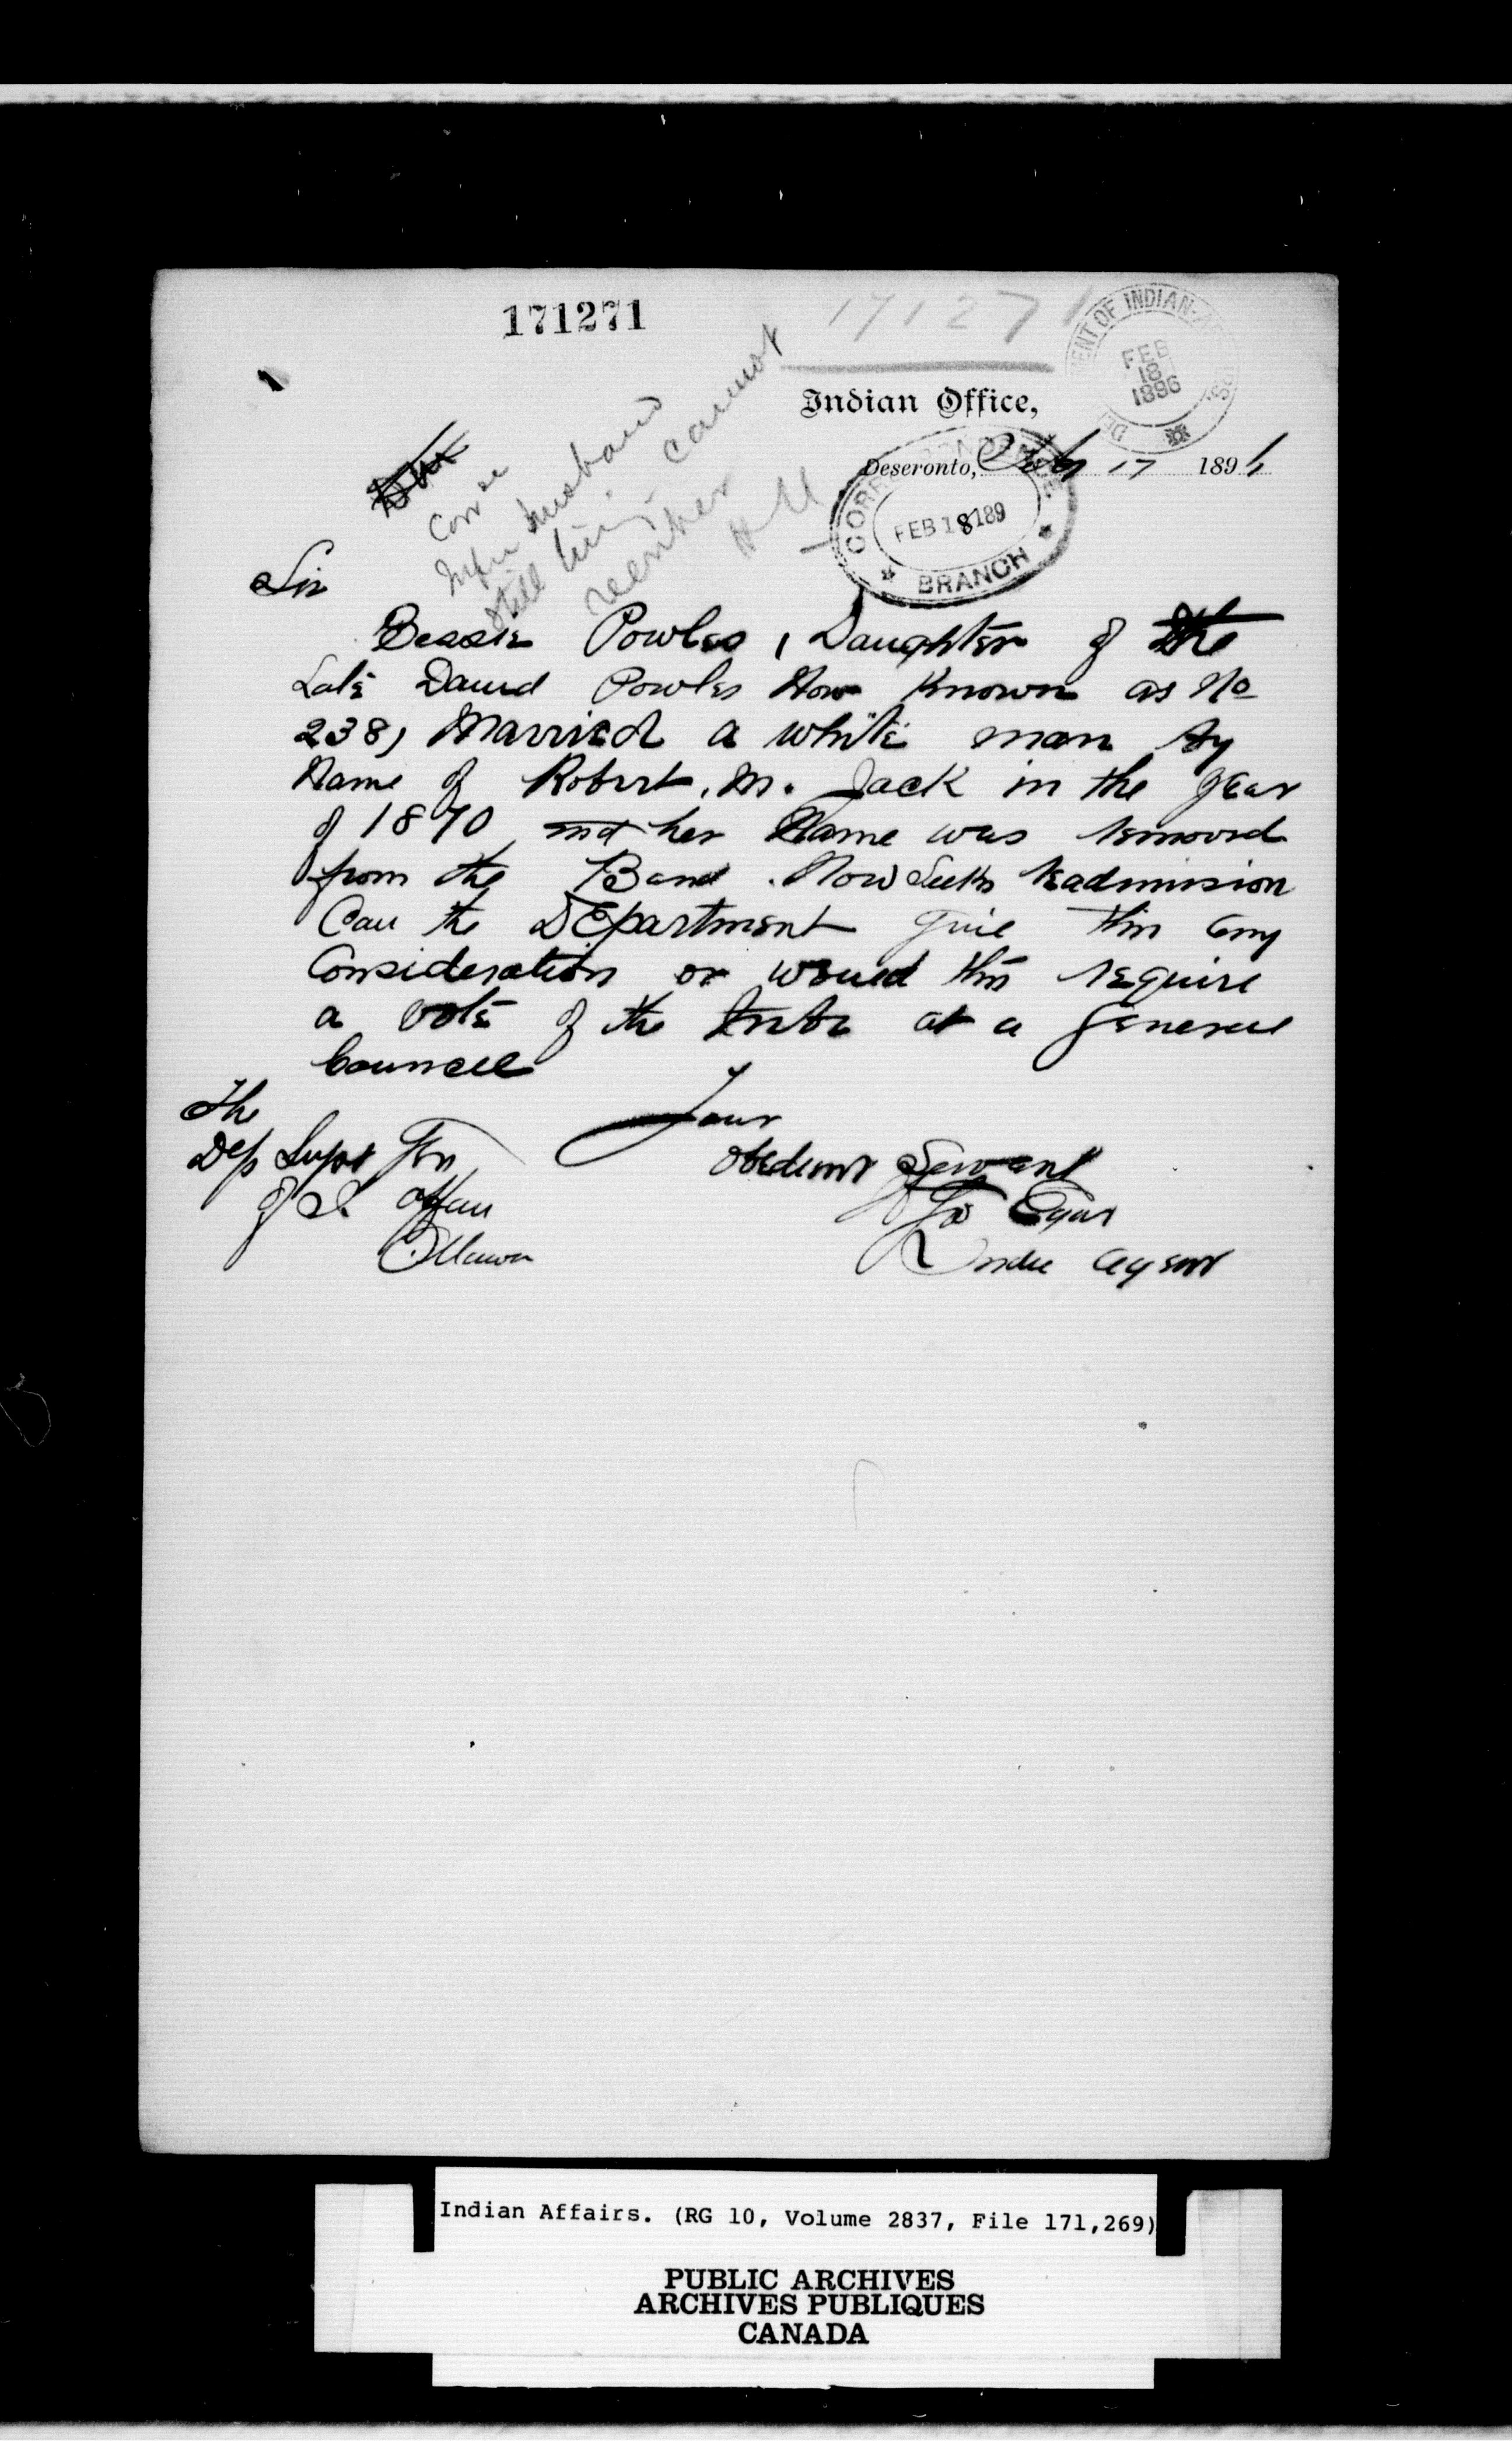 171271
171271
DEPARTMENT OF INDIAN AFFAIRS
FEB
18
1896
Indian Office,
Deseronto, Feby 17 1896
CORRESPONDENCE
FEB 18 189
BRANCH
husband
still living cannot
reenter
Sir
Bessie Powles, Daughter of the
Late David Powles Now Known as No
238, Married a white man by
Name of Robert. M. Jack in the year
of 1870 and her Name was removed
from the Band. Now Seeks readmission
Can the Department give this any
Consideration or would this require
a vote of the tribe at a general
Council
The
Dep Supt Gen
of I. Affair
Ottawa
Your
obedient Servant
Indian Agent
Indian Affairs. (RG 10, Volume 2837, File 171,269)
PUBLIC ARCHIVES
ARCHIVES PUBLIQUES
CANADA